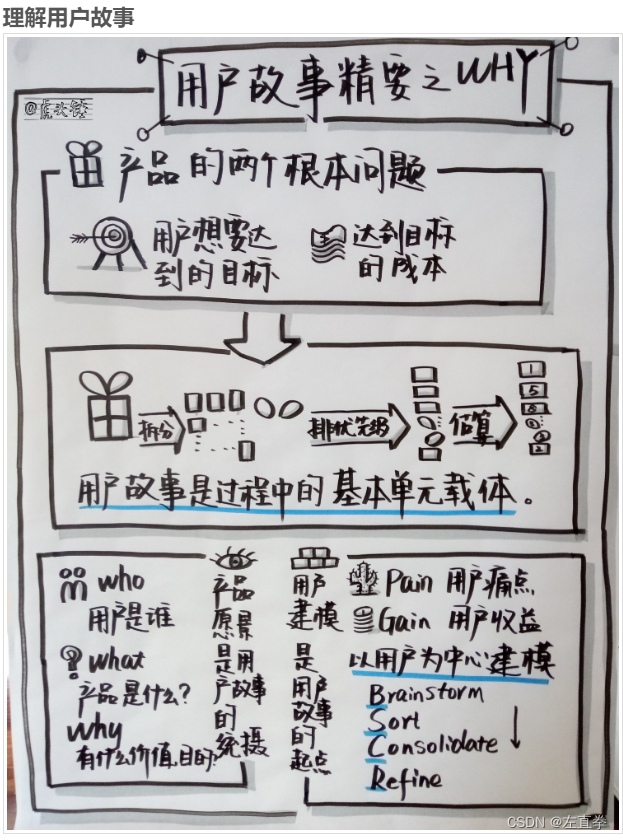 理解用户故事
用户故事精要之WHY
产品的两个根本问题
用户想要达
到的目标
达到目标
的成本
拆分
排优先级
估算
1
5
用户故事是过程中的基本单元载体。
who
用户是谁
what
产品是什么?
why
有什么价值.目的
产品
愿景
是用
户故事
的
统摄
用户
建模
是
用户
故事
的
起点
Pain 用户痛点
Gain 用户收益
以用户为中心建模
Brainstorm
Sort
Consolidate
Refine
CSDN @左直拳